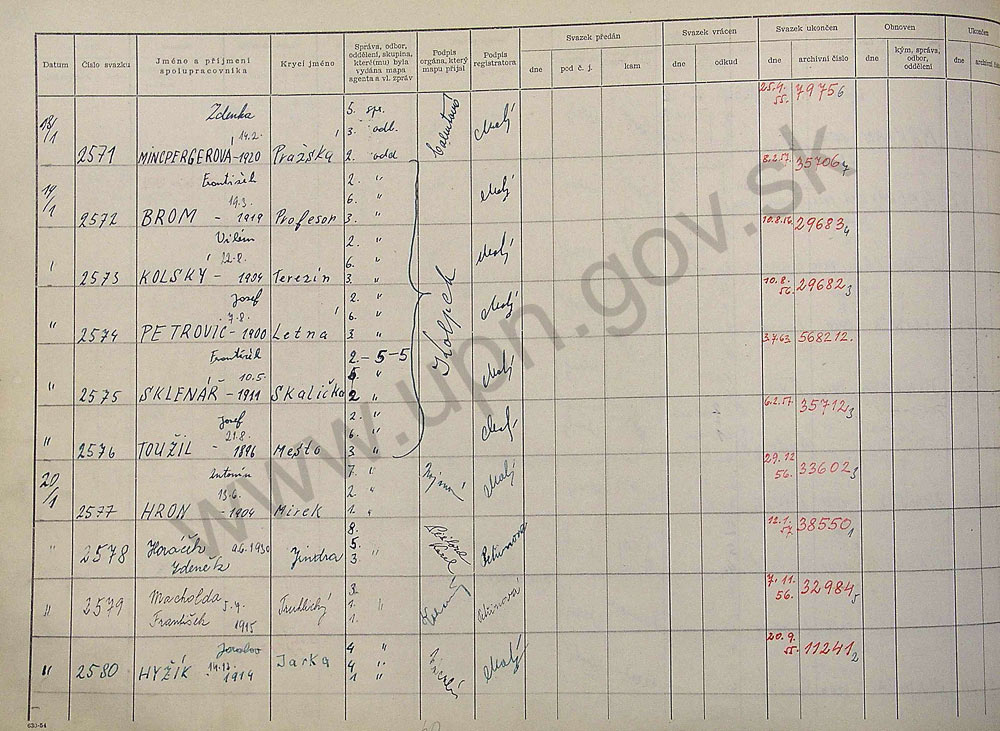 Datum
Číslo svazku
Jméno a příjmení spolupracovníka
Krycí jméno
Správa, odbor, oddělení, skupina, které(mu) byla vydána mapa agenta a vl. zpráv
Podpis orgána, který mapu přijal
Podpis registratora
Svazek předán
dne
pod č. j.
kam
Svazek vrácen
dne
odkud
Svazek ukončen
dne
archivní číslo
Obnoven
dne
kým, správa, odbor, oddělení
Ukončen
dne
18/1 2571 Zdenka 14.2. MINCPERGEROVÁ - 1920 Pražská 5. spr. 3. odb. 2. odd Malý 25.4. 55. 79756
19/1 2572 František 19.3. BROM - 1919 Profesor 2. " 6. " 3. " Malý 8.2.57. 35706
2573 Vilém 12.8. KOLSKÝ - 1904 Terezín 2. " 6. " 3. " Malý 10.8.56. 29683 4
" 2574 Josef 7.8. PETROVIC - 1900 Letná 2. " 6. " 3. " Malý 10.8. 56. 29682 3
" 2575 František 10.5. SKLENÁŘ - 1911 Skalička 2. - 5 - 5 " 2 " Malý 3.7.63 568212.
" 2576 Josef 21.8. TOUŽIL - 1896 Mesto 2. " 6. " 3 " Malý 6.2.57. 35712 3
20/1 2577 Antonín 13.6. HRON - 1904 Mirek 7. " 2. " 1. " Malý 29.12 56. 33602 3
" 2578 Horáček Zdeněk 1930 Jindra 8. 5. " 3. Petřinova 12.1. 57. 38550 1
" 2579 Macholda František 5.9. 1915 Truhlický 3. 1. " 1. Petřinova 7.11. 56. 32984 5
" 2580 Jaroslav 14.12. HYŽÍK 1914 Jarka 4 " 4 " 1 " Malý 20.9. 55. 11241 2
630-54
www.upn.gov.sk